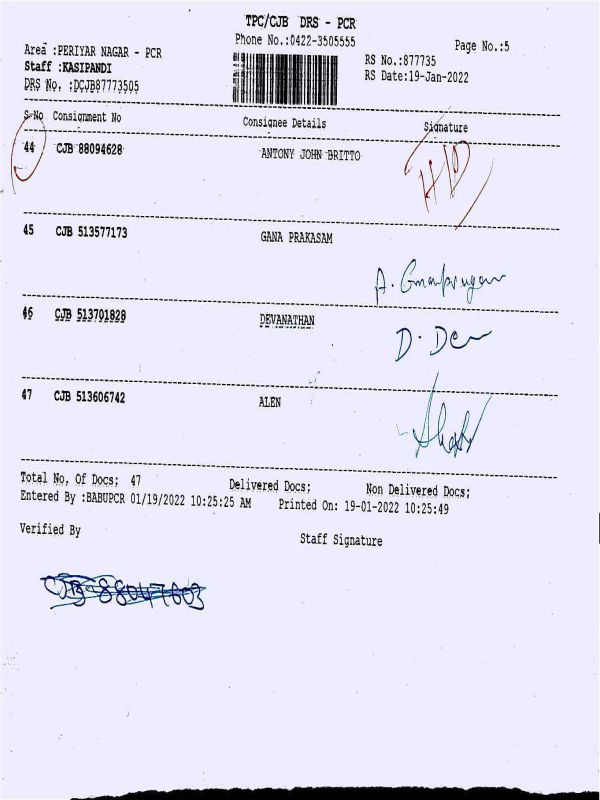 TPC/CJB DRS - PCR
Phone No.:0422-3505555
Page No.:5
Area :PERIYAR NAGAR - PCR
Staff :KASIPANDI
DRS No. :DCJB87773505
RS No.:877735
RS Date:19-Jan-2022
S.No Consignment No Consignee Details Signature
44 CJB 88094628 ANTONY JOHN BRITTO
45 CJB 513577173 GANA PRAKASAM
46 CJB 513701828 DEVANATHAN
D. Dev
47 CJB 513606742 ALEN
Total No. Of Docs; 47 Delivered Docs; Non Delivered Docs;
Entered By :BABUPCR 01/19/2022 10:25:25 AM Printed On: 19-01-2022 10:25:49
Verified By Staff Signature
CJB-88047603